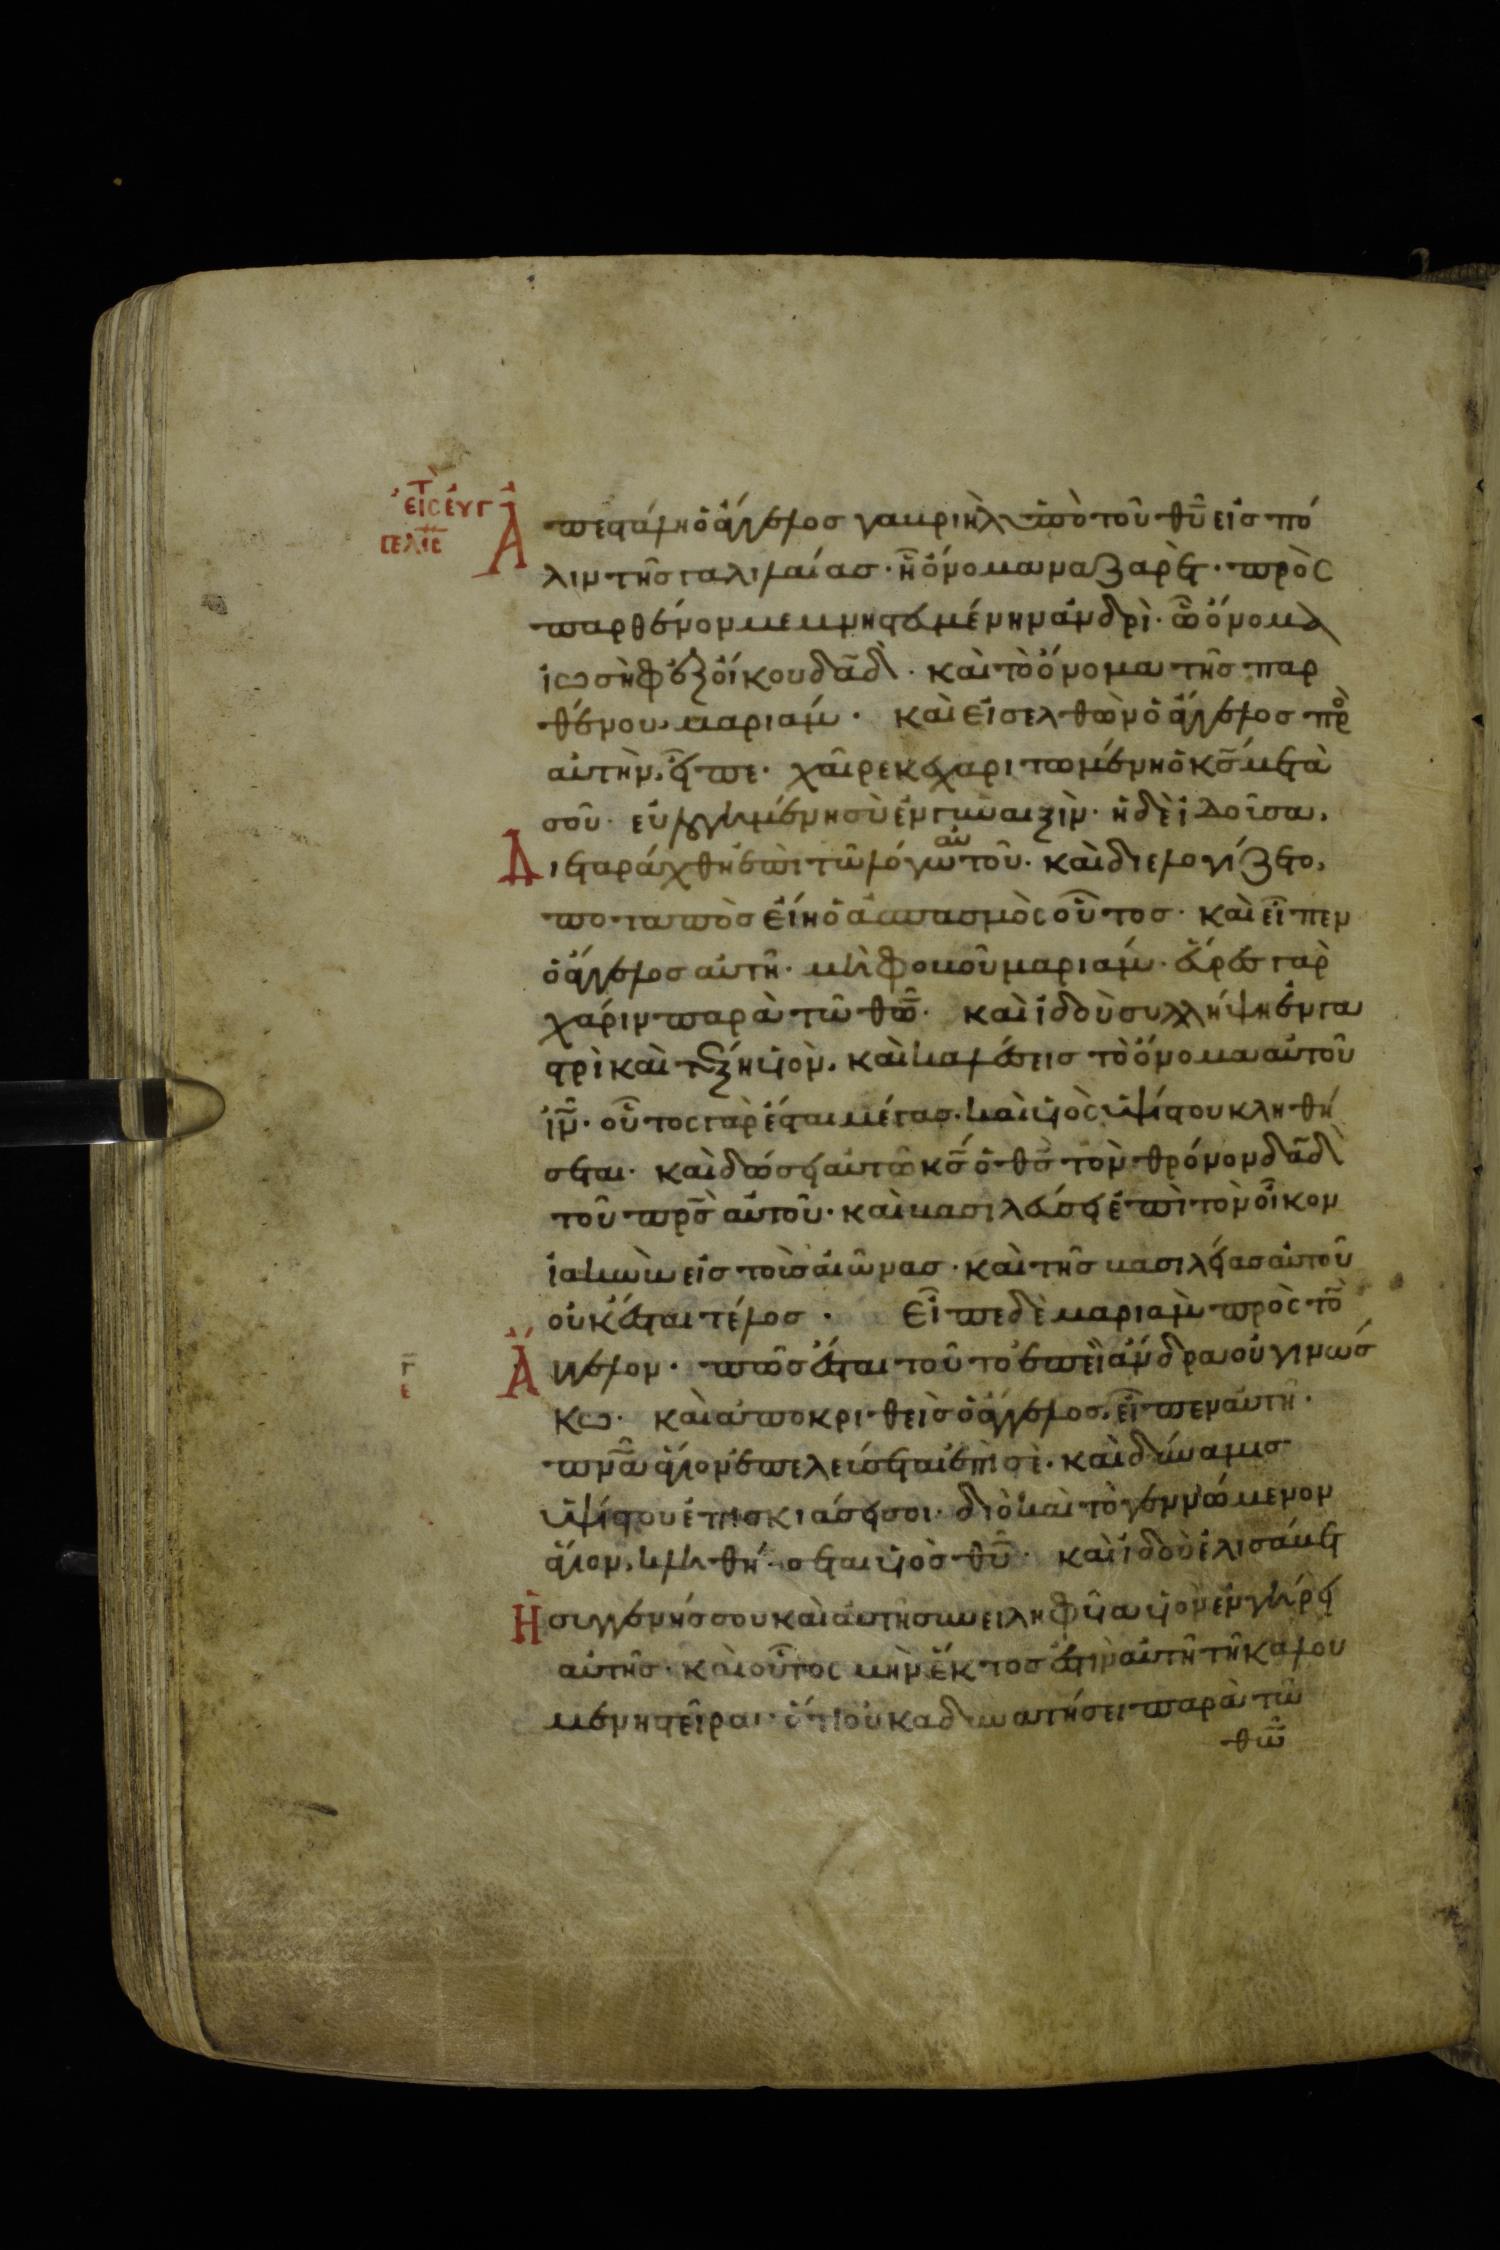 εἰς τ εὐγ
γελις
Ἀπεστάλη ὁ ἄγγελος γαβριὴλ ὑπὸ τοῦ θῦ εἰς πό
λιν τῆς γαλιλαίας· ἧ ὄνομα ναζαρὲτ· πρὸς
παρθένον μεμνηστευμένην ἀνδρὶ· ὧ ὄνομα
ἰωσὴφ ἐξ οἴκου δᾱδ· καὶ τὸ ὄνομα τῆς παρ
θένου μαριάμ· καὶ εἰσελθὼν ὁ ἄγγελος πρ
αὐτὴν, εἶπε· χαῖρε κεχαριτωμένη ὁ κς μετὰ
σοῦ· εὐλογημένη σὺ ἐν γυναιξὶν· ἡ δὲ ἰδοῦσα,
Διεταράχθη ἐπὶ τῶ λόγω αὐτοῦ· καὶ διελογίζετο,
ποταπὸς εἴη ὁ ἀσπασμὸς οὗτος· καὶ εἶπεν
ὁ ἄγγελος αὐτῆ· μὴ φοβοῦ μαριάμ· εὗρες γὰρ
χάριν παρὰ τῶ θω· καὶ ἰδοὺ συλλήψη ἐν γα
στρὶ καὶ τέξη υἱὸν, καὶ καλέσεις τὸ ὄνομα αὐτοῦ
ἰν· οὗτος γὰρ ἔσται μέγας· καὶ υἱὸς ὑψίστου κληθή
σεται· καὶ δώσει αὐτῶ κς ὁ θς τὸν θρόνον δᾱδ
τοῦ πρς αὐτοῦ· καὶ βασιλεύσει ἐπὶ τὸν οἶκον
ἰακὼβ εἰς τοὺς αἰῶνας· καὶ τῆς βασιλείας αὐτοῦ
οὐκ ἔσται τέλος· Εἶπε δὲ μαριὰμ πρὸς τὸ
Ἄγγελον· πῶς ἔσται τοῦτο ἐπεὶ ἄνδρα οὐ γινώσ
κω· καὶ ἀποκριθεὶς ὁ ἄγγελος, εἶπεν αὐτῆ·
πνα ἅγιον ἐπελεύσεται ἐπὶ σὲ· καὶ δύναμις
ὑψίστου ἐπισκιάσει σοι· διὸ καὶ τὸ γεννώμενον
ἅγιον, κληθήσεται υἱὸς θῦ· καὶ ἰδοὺ ἐλισάβετ
Ἡ συγγενής σου καὶ αὐτὴ συνειληφυῖα υἱὸν ἐν γήρει
αὐτῆς· καὶ οὗτος μὴν ἕκτος ἐστὶν αὐτῆ τῆ καλου
μένη στεῖρα· ὅτι οὐκ ἀδυνατήσει παρὰ τῶ
θω
γ
ε